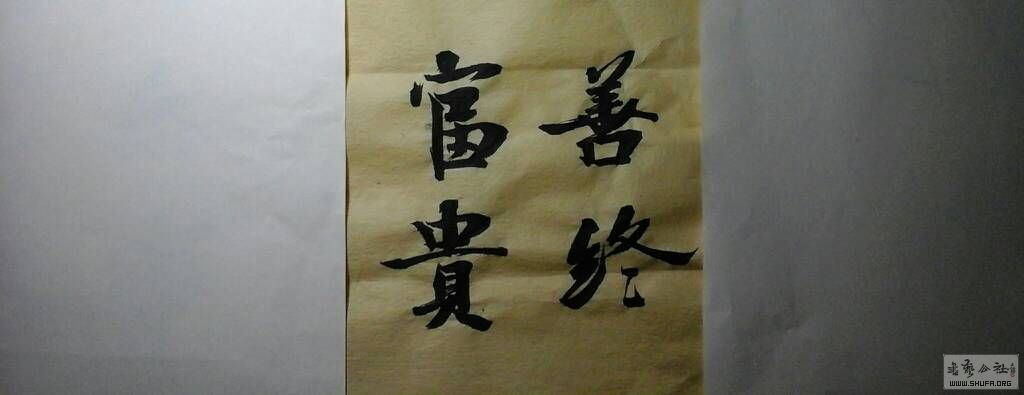 善终
富貴
書藝公社
WWW.SHUFA.ORG